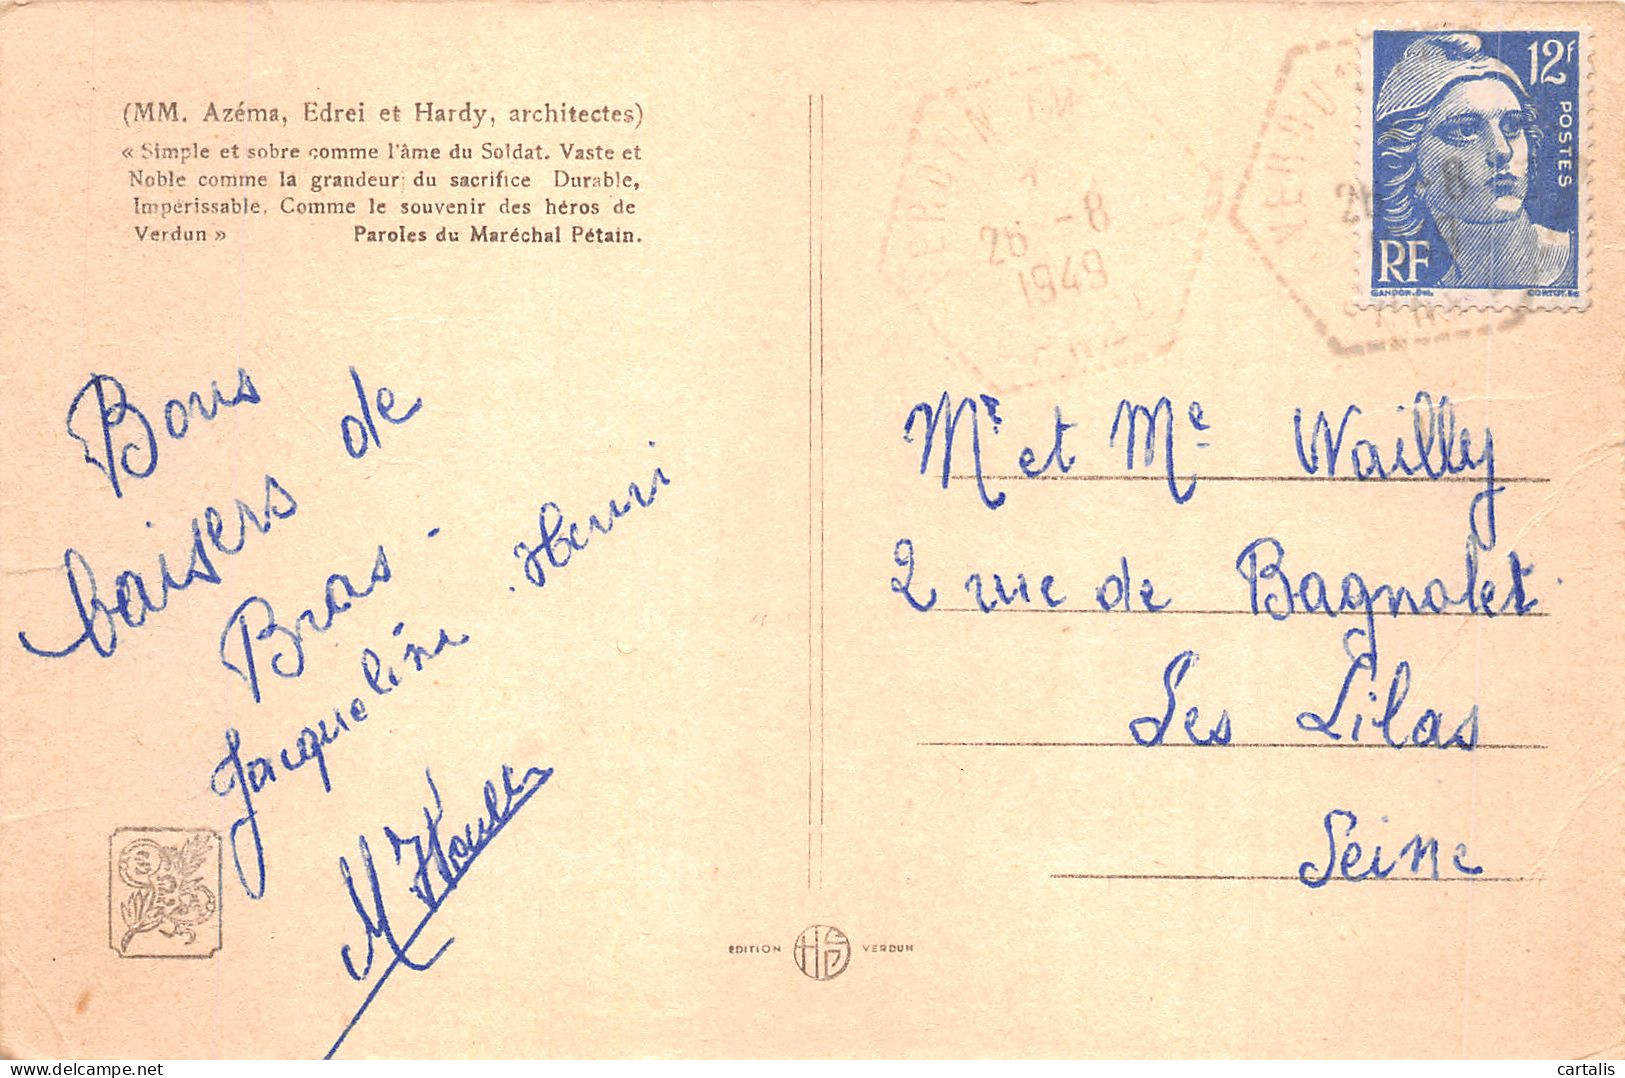 (MM. Azéma, Edrei et Hardy, architectes)
« Simple et sobre comme l'âme du Soldat. Vaste et
Noble comme la grandeur du sacrifice Durable,
Impérissable. Comme le souvenir des héros de
Verdun » Paroles du Maréchal Pétain.
12F
POSTES
RF
GANDON.Del.
26 -8
1949
VERDUN
Bons
baisers de
Bras -
Jacqueline . Henri
M
Mr et Me Wailly
2 rue de Bagnolet.
Les Lilas
Seine
EDITION HS VERDUN
cartalis